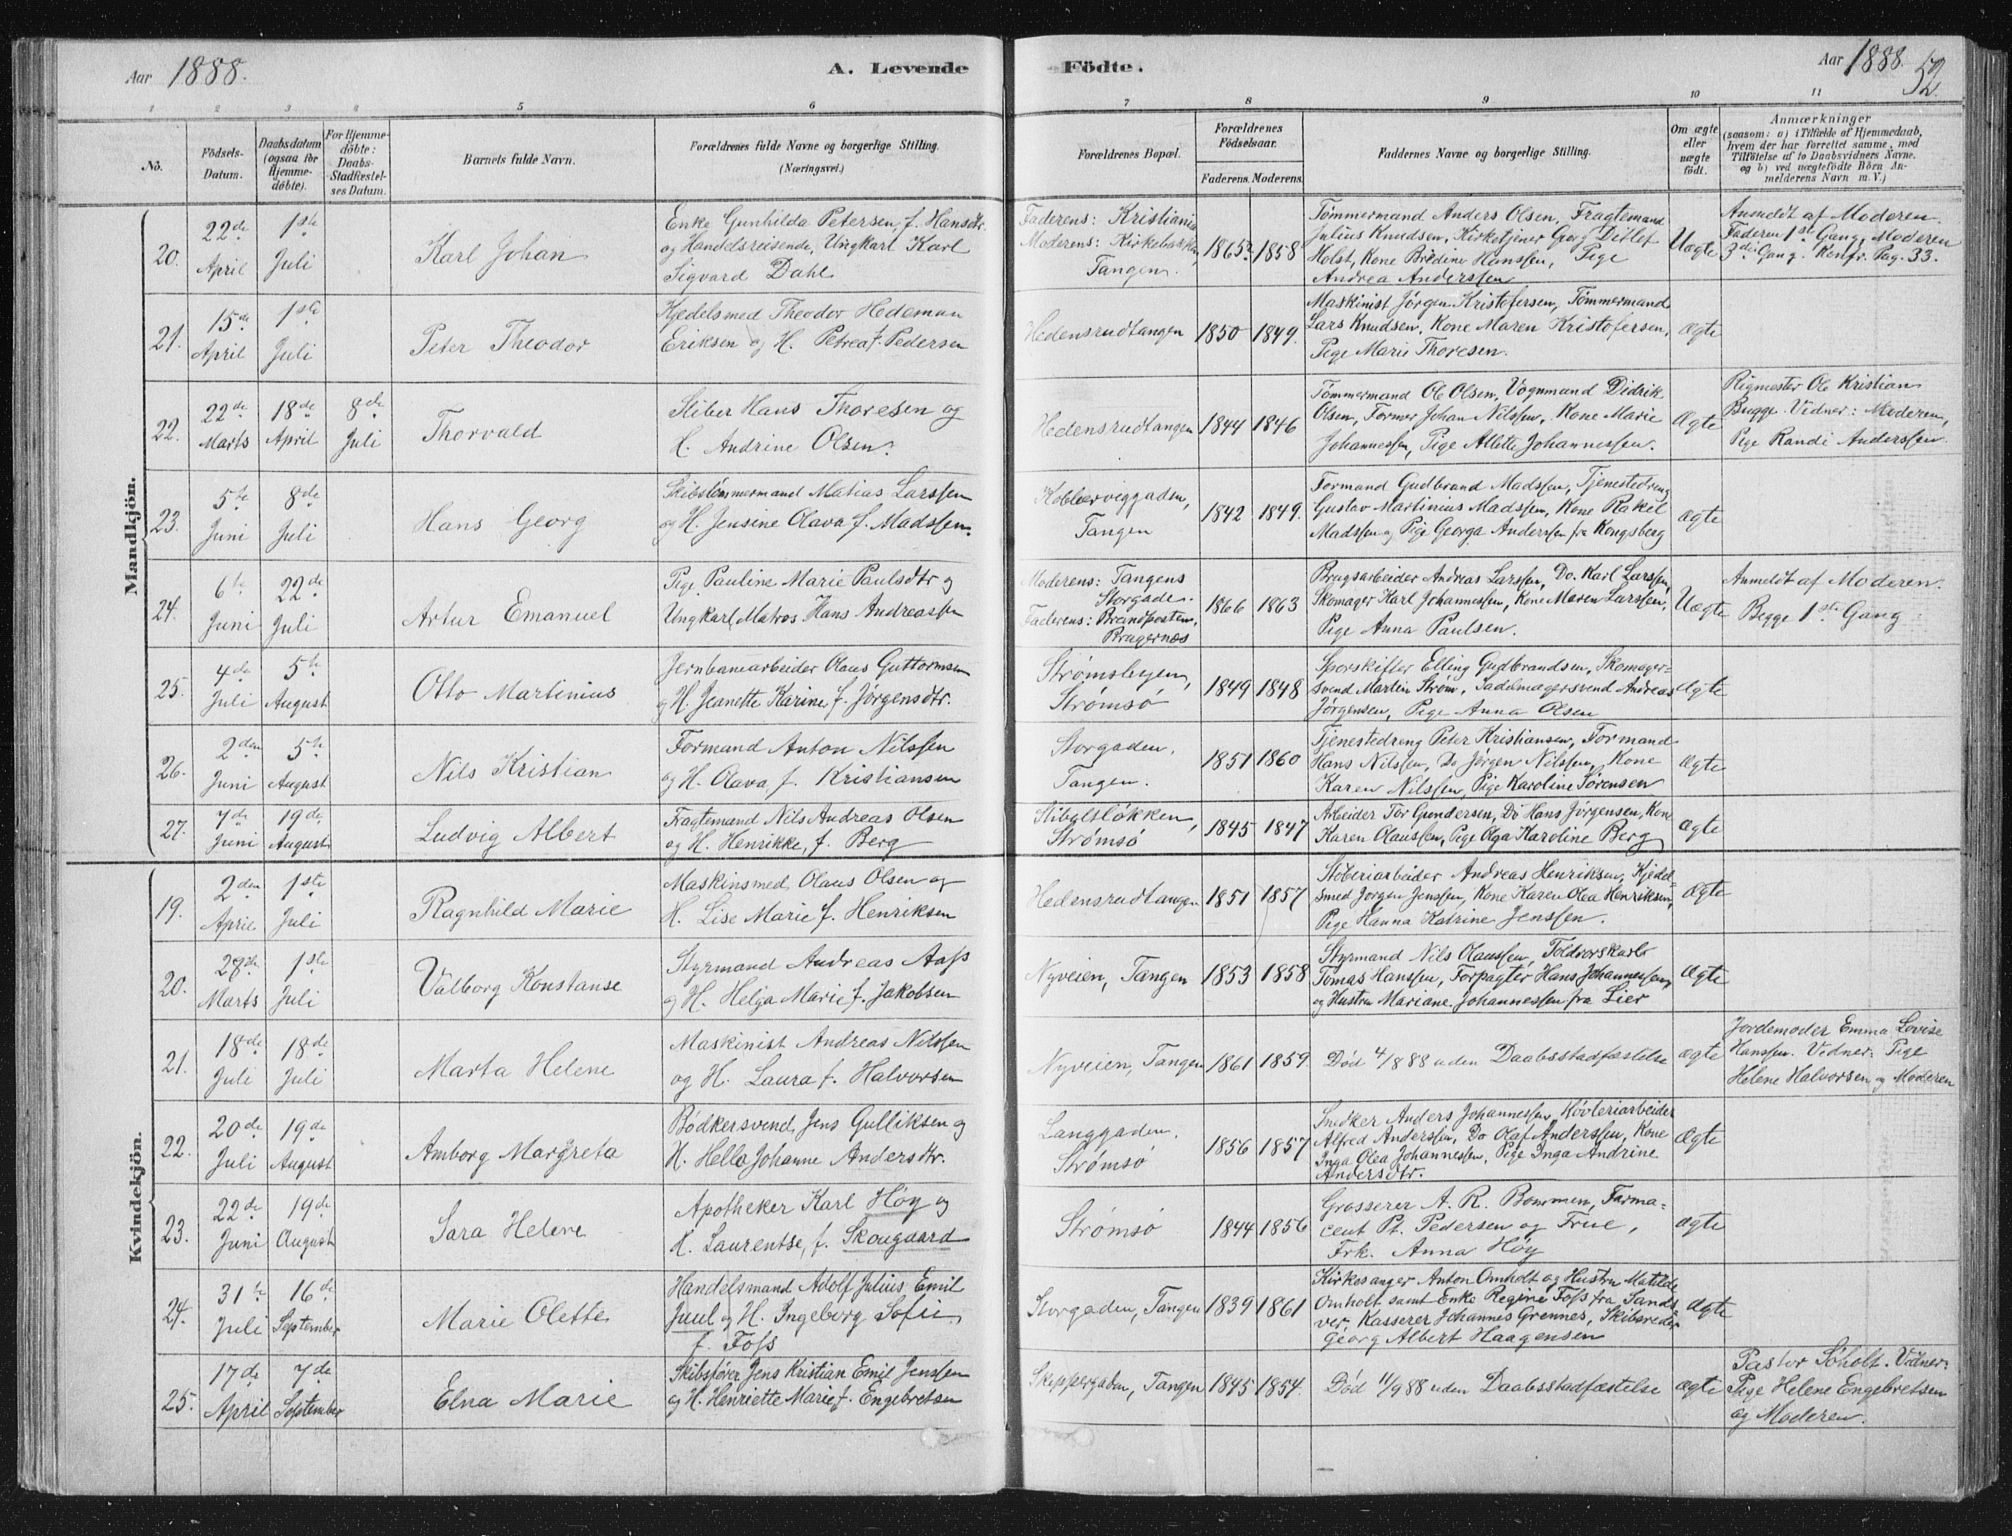 Aar 1888.
A. Levende Födte.
Aar 1888. 52.
1 2 3 4 5 6 7 8 9 10 11
No.
Födsels-Datum.
Daabsdatum (ogsaa for Hjemme-döbte).
For Hjemme-döbte: Daabs-Stadfæstel-ses Datum.
Barnets fulde Navn.
Forældrenes fulde Navne og borgerlige Stilling. (Næringsvei.)
Forældrenes Bopæl.
Forældrenes Födselsaar.
Faderens. Moderens.
Faddernes Navne og borgerlige Stilling.
Om ægte eller uægte födt.
Anmærkninger
(saasom: a) i Tilfælde af Hjemmedaab, hvem der har forrettet samme, med Tilföielse af to Daabsvidners Navne, og b) ved uægtefödte Börn An-melderens Navn m. V.)
Mandkjön.
20. 22de April 1ste Juli Karl Johan
Enke Gunhilda Petersen, f. Hansdtr.
og Handelsreisende, Ungkarl Karl
Sigvard Dahl
Faderens: Kristiania
Moderens: Kirkebakken,
Tangen.
1865? 1858
Tømmermand Anders Olsen, Fragtemand
Julius Knudsen, Kirketjener Georg Ditlef
Holst, Kone Bredine Hanssen, Pige
Andrea Anderssen
Uægte
Anmeldt af Moderen.
Faderen 1ste Gang, Moderen
3die Gang. Konfr. Pag. 33.
21. 15de April 1ste Juli Peter Theodor
Kjedelsmed Theodor Hedeman
Eriksen og H. Petrea f. Pedersen
Hedensrudtangen 1850 1849.
Maskinist Jörgen Kristofersen, Tömmermand
Lars Knudsen, Kone Maren Kristofersen,
Pige Marie Thoresen.
Ægte
22. 22de Marts 18de April 8de Juli Thorvald
Sliber Hans Thoresen og
H. Andrine Olsen.
Hedensrudtangen 1844 1846
Tømmermand Ole Olsen, Vognmand Didrik
Olsen, Former Johan Nilssen, Kone Marie
Johannessen, Pige Allette Johannessen.
Ægte
Rigmester Ole Kristian
Bugge. Vidner: Moderen,
Pige Randi Anderssen.
23. 5te Juni 8de Juli Hans Georg
Skibstømmermand Matias Larssen
og H. Jensine Olava f. Madssen.
Kobbervikgaden,
Tangen
1842 1849.
Formand Gudbrand Madssen, Tjenestedreng
Gustav Martinius Madssen, Kone Rakel
Madssen og Pige Georga Anderssen fra Kongsberg
Ægte
24. 6te Juni 22de Juli Artur Emanuel
Pige Pauline Marie Paulsdtr og
Ungkarl, Matros Hans Andreassen
Moderens: Tangens
Storgade.
Faderens: Brandposten,
Bragernæs
1866 1863
Brugsarbeider Andreas Larssen, Do. Karl Larssen,
Skomager Karl Johannessen, Kone Maren Larssen,
Pige Anna Paulsen.
Uægte
Anmeldt af Moderen.
Begge 1ste Gang
25. 4de Juli 5te August Otto Martinius
Jernbanearbeider Olaus Guttormsen
og H. Jeanette Karine f. Jørgensdtr.
Strømshegen,
Strømsö
1849 1848
Sporskifter Elling Gudbrandsen, Skomager-
svend Martin Strøm, Sadelmagersvend Andreas
Jörgensen, Pige Anna Olsen
Ægte
26. 2den Juni 5te August Nils Kristian
Formand Anton Nilssen
og H. Olava f. Kristiansen
Storgaden.
Tangen.
1851 1860
Tjenestedreng Peter Kristiansen, Formand
Hans Nilssen, Do Jørgen Nilssen, Kone
Karen Nilssen, Pige Karoline Sørensen
Ægte
27. 7de Juni 19de August Ludvig Albert
Fragtemand Nils Andreas Olsen
og H. Henrikke, f. Berg
Stiboltsløkken,
Strømsö
1845 1847
Arbeider Tor Gundersen, Do Hans Jørgensen, Kone
Karen Olaussen, Pige Olga Karoline Berg
Ægte
Kvindekjön.
19. 2den April 1ste Juli Ragnhild Marie
Maskinsmed Olaus Olsen og
H. Lise Marie f. Henriksen
Hedensrudtangen 1851 1857
Støberiarbeider Andreas Henriksen, Kjedel-
smed Jørgen Jenssen, Kone Karen Olea Henriksen,
Pige Hanna Katrine Jenssen.
Ægte
20. 28de Marts 1ste Juli Valborg Konstanse
Styrmand Andreas Aass
og H. Helga Marie f. Jakobsen
Nyveien, Tangen 1853 1858
Styrmand Nils Olaussen, Toldvorskarl
Tomas Hanssen, Forpagter Hans Johannessen
og Hustru Mariane Johannessen fra Lier
Ægte
21. 18de Juli 18de Juli Marta Helene
Maskinist Andreas Nilssen
og H. Laura f. Halvorsen
Nyveien, Tangen 1861 1859.
Död 4/8 88 uden Daabsstadfæstelse
Ægte
Jordemoder Emma Lovise
Hanssen. Vidner: Pige
Helene Halvorsen og Moderen
22. 20de Juli 19de August Amborg Margreta
Bødkersvend Jens Gulliksen og
H. Hella Johanne Andersdtr.
Langgaden.
Strømsö
1856 1857
Snedker Anders Johannessen, Høvleriarbeider
Alfred Anderssen, Do Olaf Anderssen, Kone
Inga Olea Johannessen, Pige Inga Andrine
Andersdtr.
Ægte
23. 22de Juni 19de August Sara Helene
Apotheker Karl Høy og
H. Laurentse, f. Skougaard
Strømsö 1844 1856
Grosserer A. R. Bommen, Farma-
ceut Pt. Pedersen og Frue,
Frk. Anna Høy
Ægte
24. 31te Juli 16de September Marie Olette
Handelsmand Adolf Julius Emil
Juul og H. Ingeborg Sofie
f. Foss
Storgaden, Tangen 1839 1861
Kirkesanger Anton Omholt og Hustru Matilde
Omholt samt Enke Regine Foss fra Sands-
ver, Kasserer Johannes Grennes, Skibsreder
Georg Albert Haagensen
Ægte
25. 17de April 7de September Elna Marie
Skibsfører Jens Kristian Emil Jenssen
og H. Henriette Marie f. Engebretsen
Skippergaden, Tangen 1845 1854.
Död 11/9 88 uden Daabsstadfæstelse
Ægte
Pastor Søholt. Vidner:
Pige Helene Engebretsen
og Moderen.